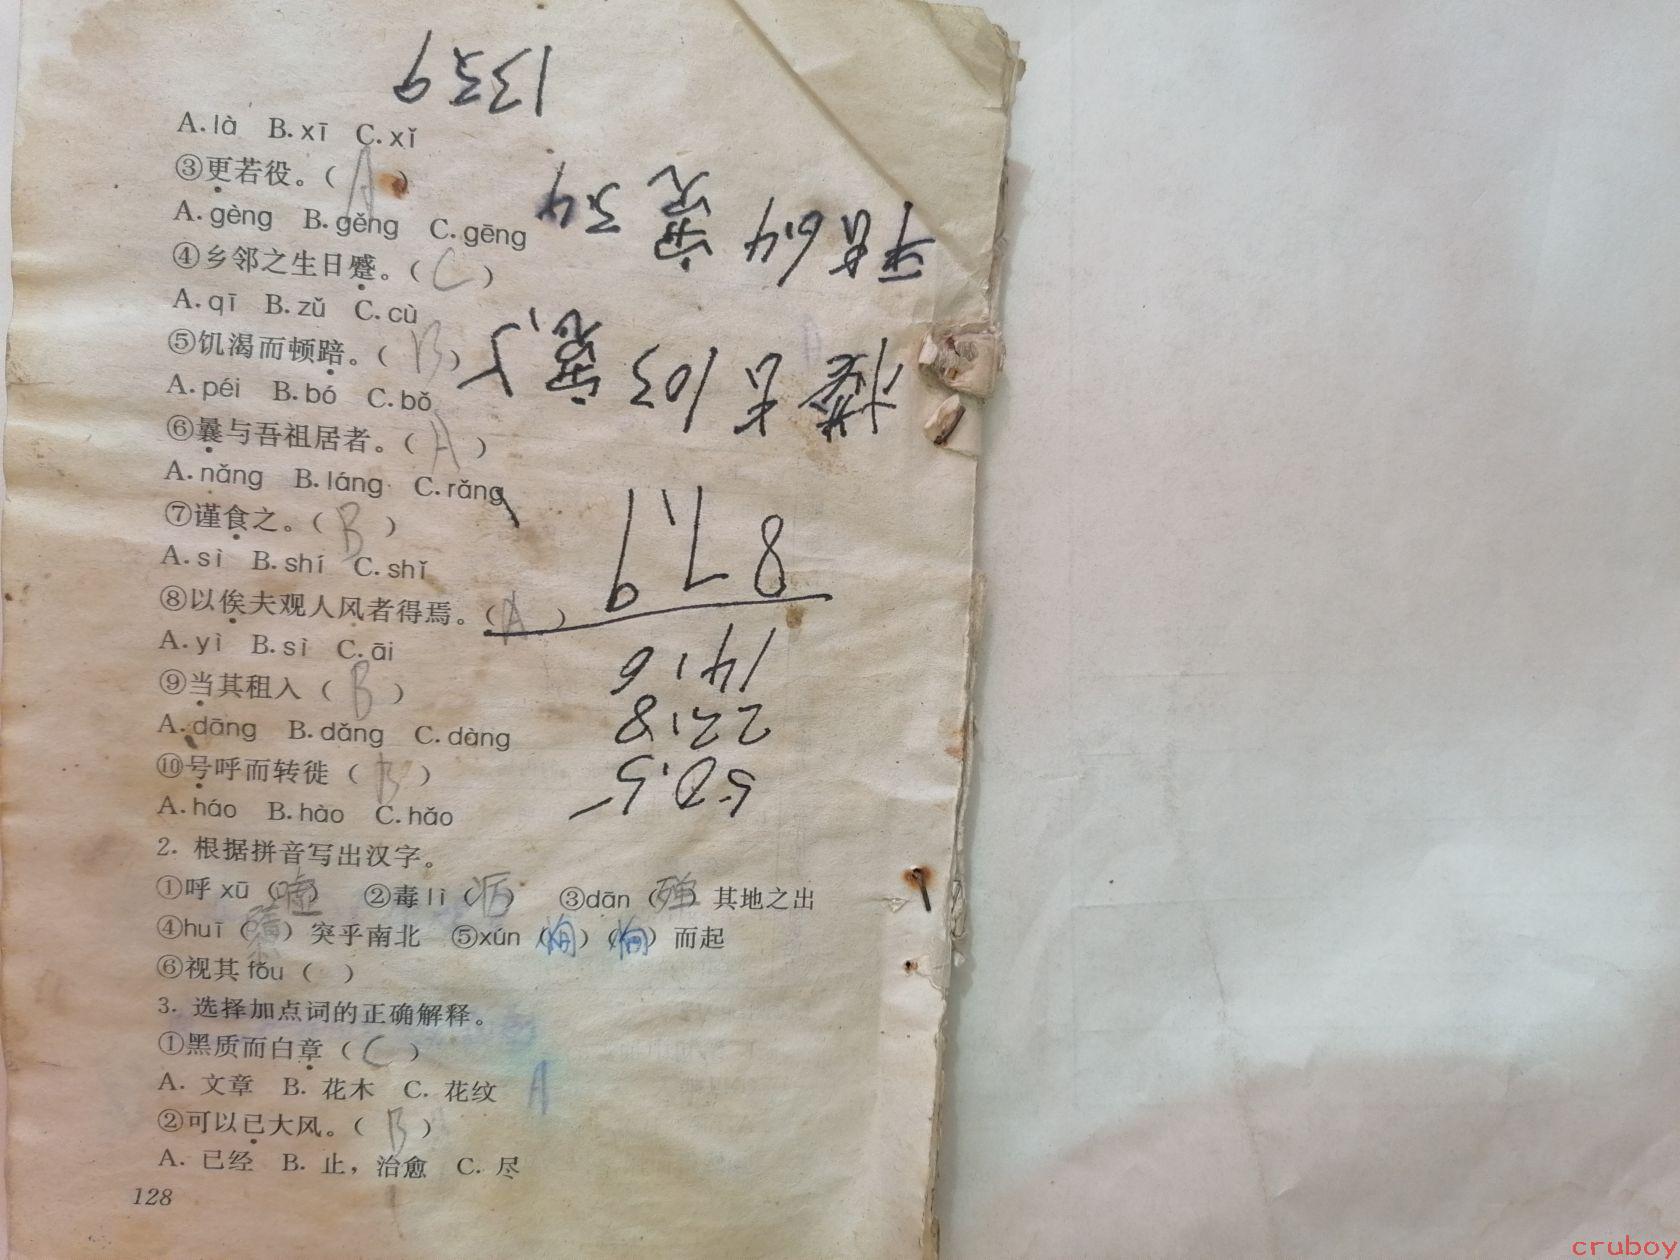 A. là B. xī C. xǐ
③更若役。(A)
A. gèng B. gěng C. gēng
④乡邻之生日蹙。(C)
A. qī B. zǔ C. cù
⑤饥渴而顿踣。(B)
A. péi B. bó C. bǒ
⑥曩与吾祖居者。(A)
A. nǎng B. láng C. rǎng
⑦谨食之。(B)
A. sì B. shí C. shǐ
⑧以俟夫观人风者得焉。(A)
A. yì B. sì C. āi
⑨当其租入(B)
A. dāng B. dǎng C. dàng
⑩号呼而转徙(B)
A. háo B. hào C. hǎo
2. 根据拼音写出汉字。
①呼 xū() ②毒 lì() ③dān(殚)其地之出
④huī(隳)突乎南北 ⑤xún(恂)(恂)而起
⑥视其 fǒu( )
3. 选择加点词的正确解释。
①黑质而白章(C)
A. 文章 B. 花木 C. 花纹 A
②可以已大风。(B)
A. 已经 B. 止，治愈 C. 尽
128
50.5
22.8
14.6
87.9
长103宽
长64宽34
1359
cruboy